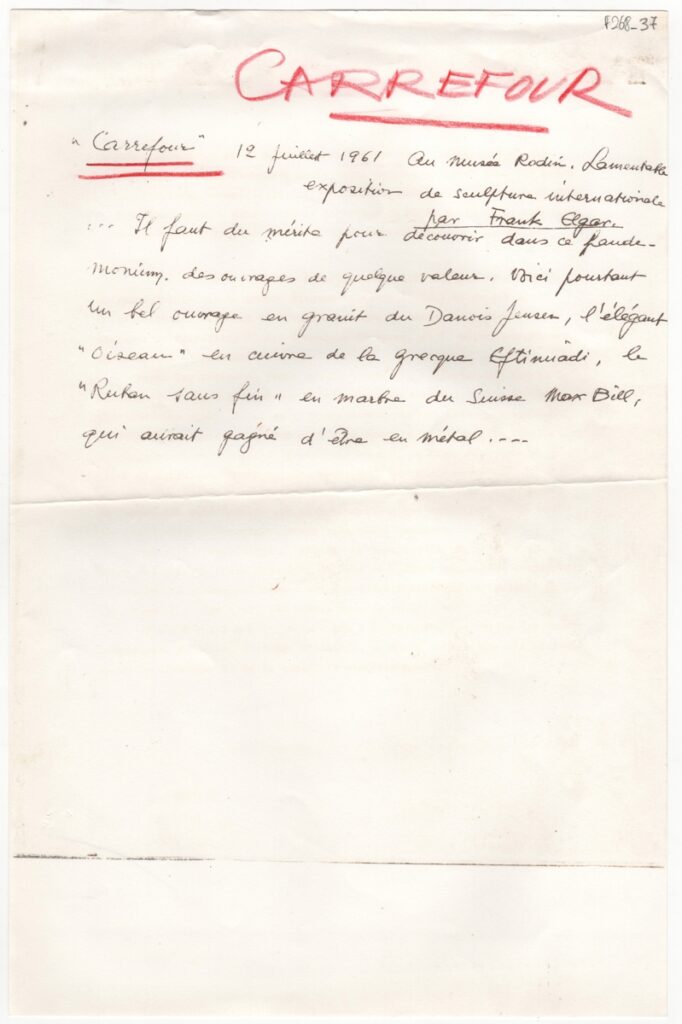 F268_37
CARREFOUR
"Carrefour" 12 juillet 1961 Au musée Rodin. Lamentable
exposition de sculpture internationale
par Frank Elgar.
... Il faut du mérite pour découvrir dans ce pande-
monium. des ouvrages de quelque valeur. Voici pourtant
un bel ouvrage en granit du Danois Jensen, l'élégant
"Oiseau" en cuivre de la grecque Eftimiádi, le
"Ruban sans fin" en marbre du Suisse Max Bill,
qui aurait gagné d'être en métal. ----